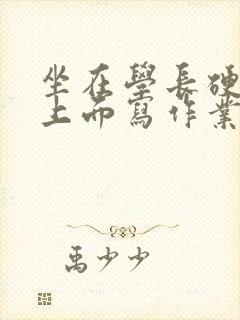 坐在學長硬
上面寫作業
禹少少